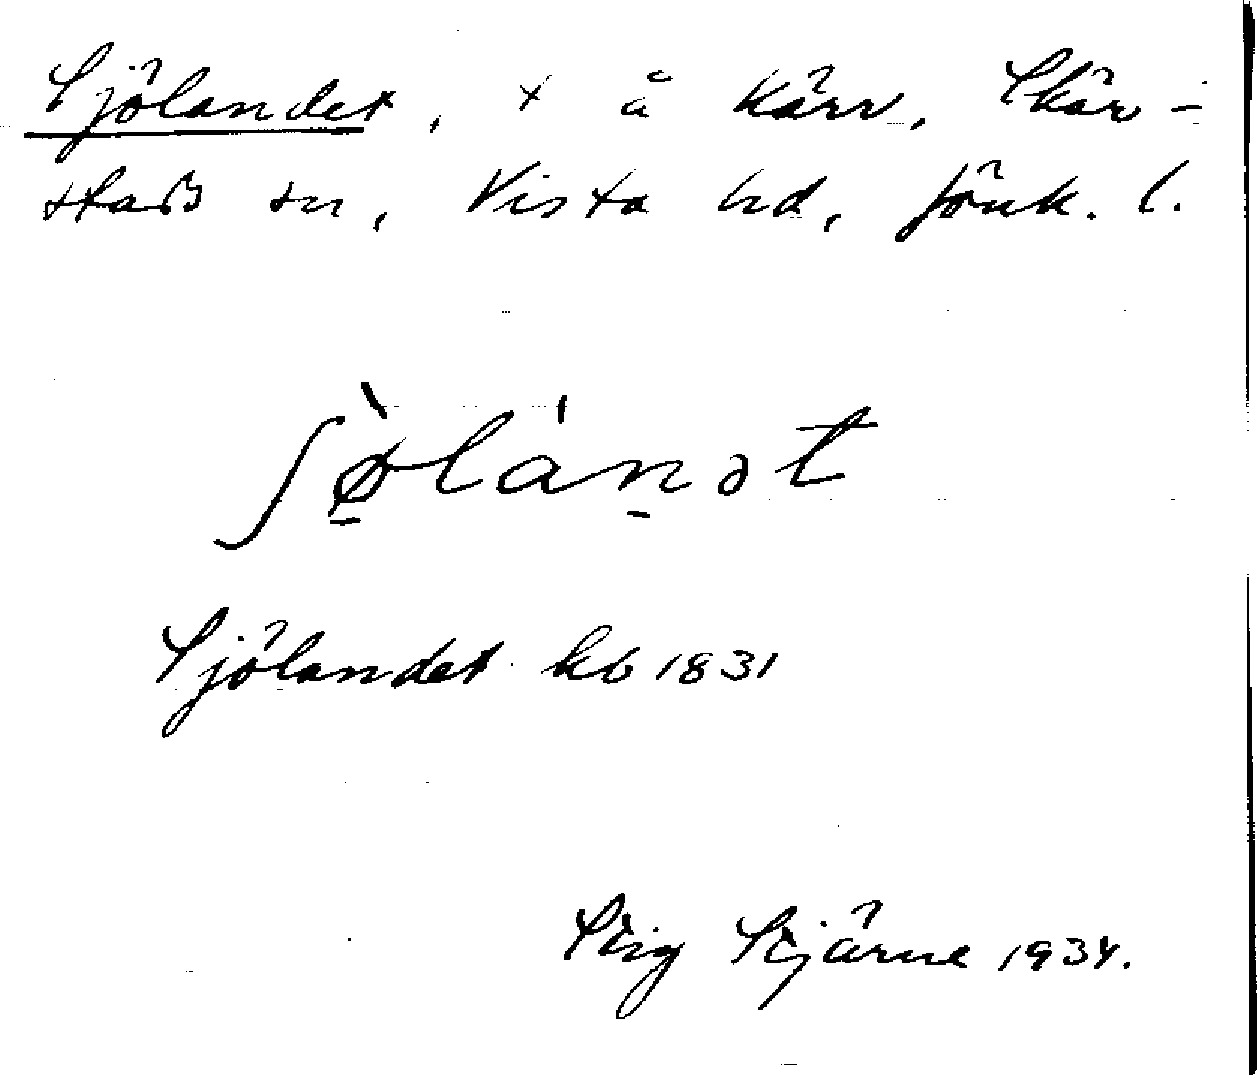 Sjölandet, t å Kärr, Skär-
stads sn, Vista hd, Jönk. l.
ʃø̠̀lán̠ət
Sjölandet kb 1831
Stig Stjärne 1934.